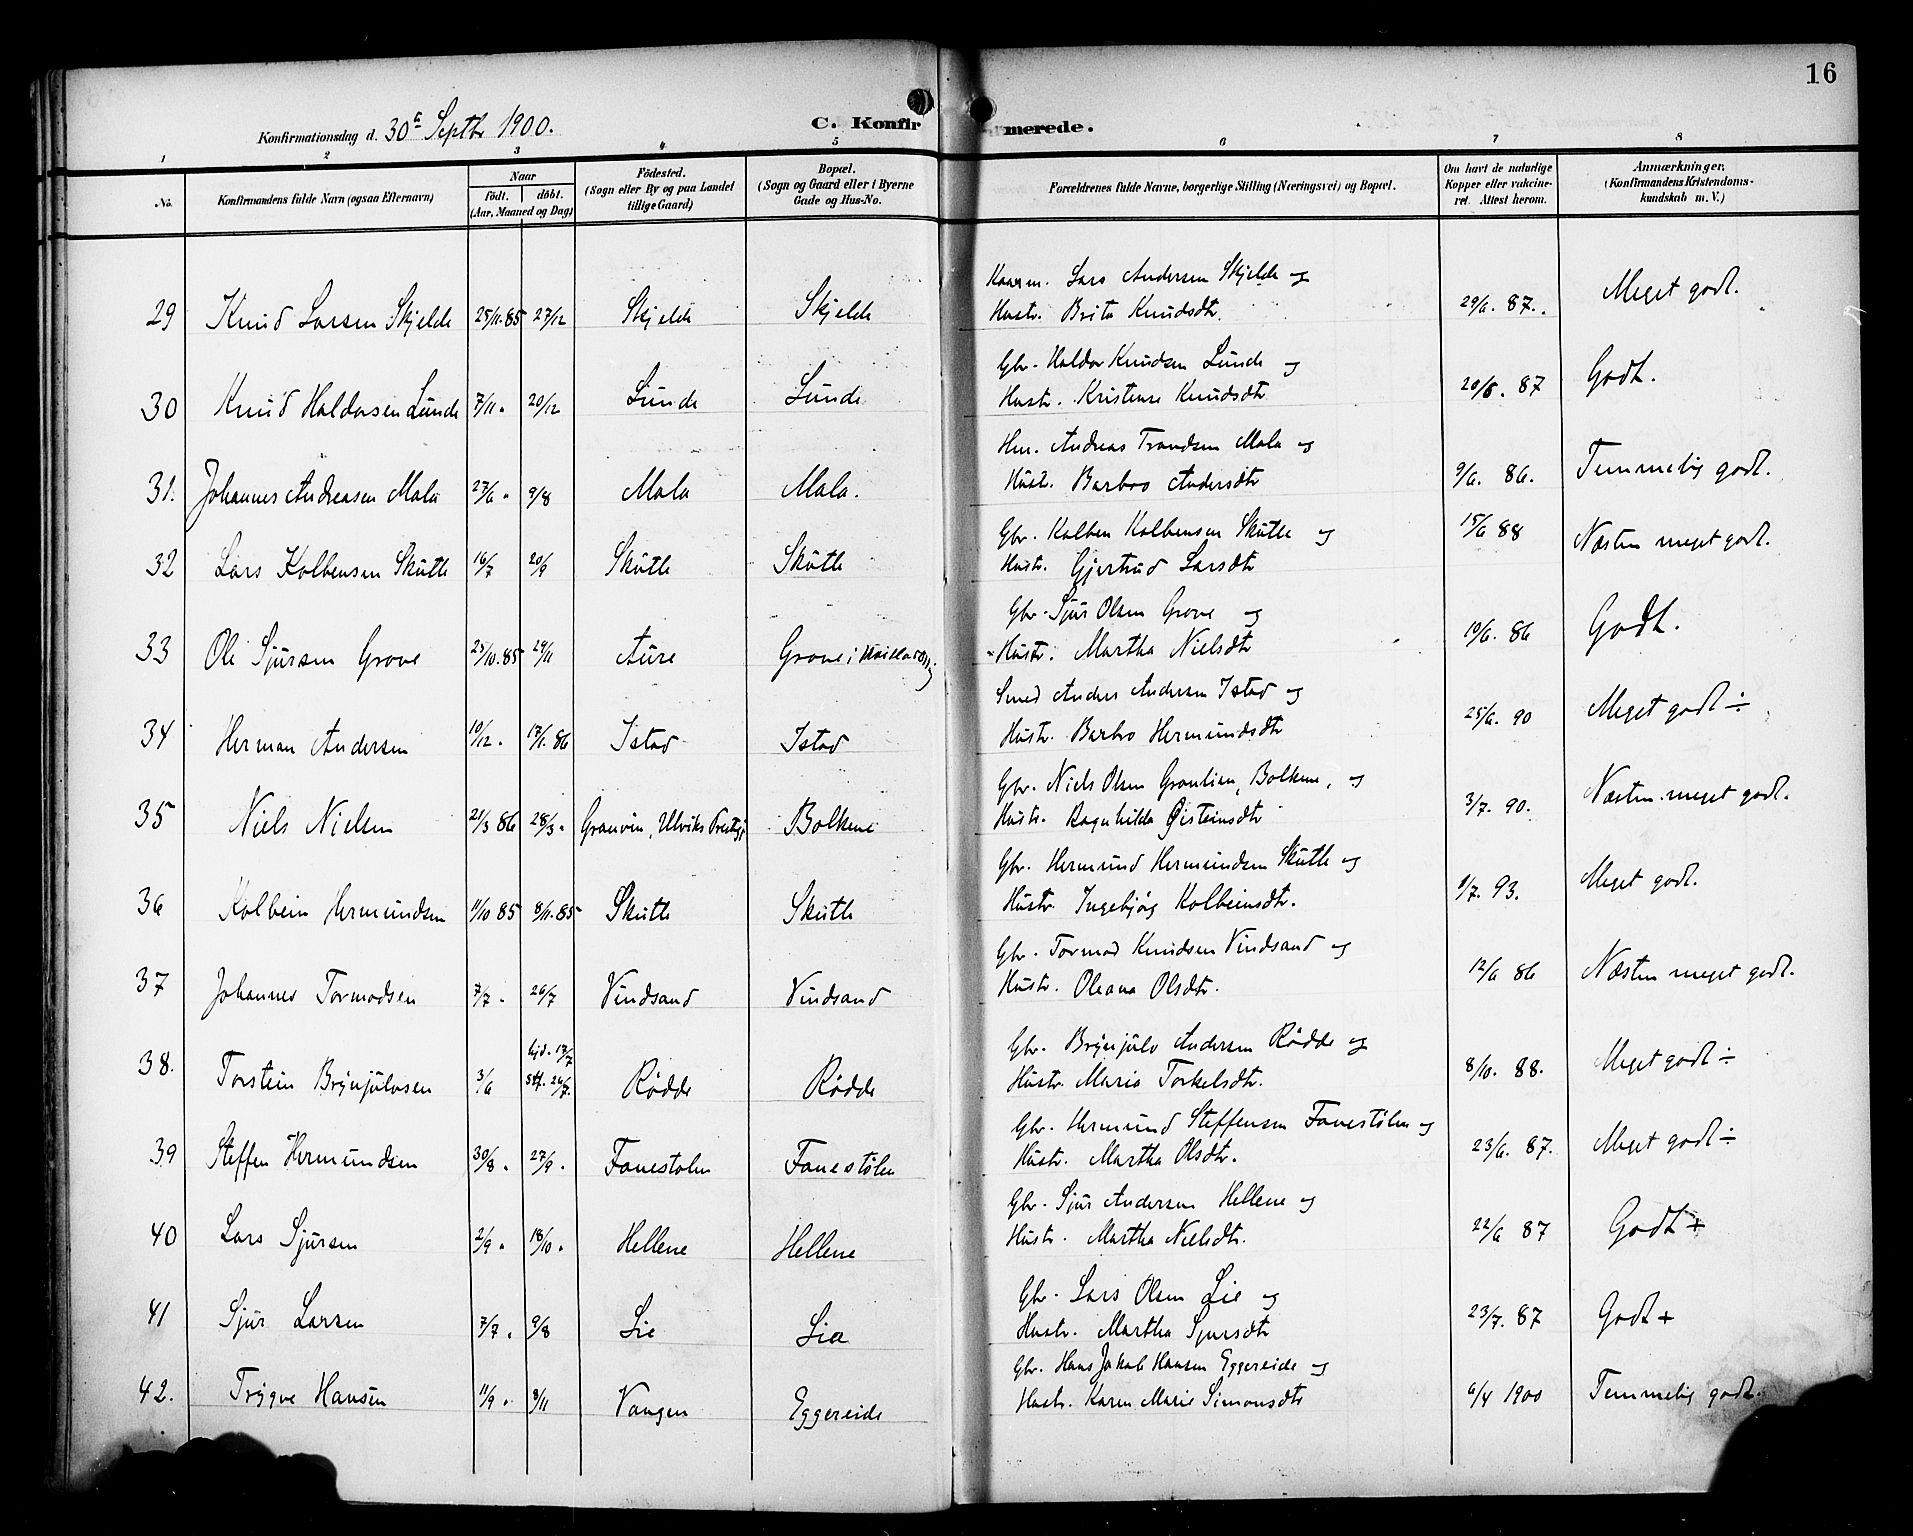 16
Konfirmationsdag d. 30te Septbr 1900.
C. Konfirmerede.
1 2 3 4 5 6 7 8
No.
Konfirmandens fulde Navn (ogsaa Efternavn)
Naar
födt. döbt.
(Aar, Maaned og Dag)
Födested.
(Sogn eller By og paa Landet
tillige Gaard)
Bopæl.
(Sogn og Gaard eller i Byerne
Gade og Hus-No.
Forældrenes fulde Navne, borgerlige Stilling (Næringsvei) og Bopæl.
Om havt de naturlige
Kopper eller vakcine-
ret. Attest herom.
Anmærkninger.
(Konfirmandens Kristendoms-
kundskab m. V.)
Lars Andersen Skjelde og
29 Knud Larsen Skjelde 25/11.85 27/12 Skjelde Skjelde Hustr. Brita Knudsdtr. 29/6. 87. Meget godt.
Gbr. Haldor Knudsen Lunde og
30 Knud Haldorsen Lunde 7/11. 20/12 Lunde Lunde Hustr. Kristense Knudsdtr 20/8. 87 Godt.
Hm. Andreas Trondsen Mala og
31. Johannes Andreasen Mala 27/6 " 9/8 Mala Mala. Hustr. Barbro Andersdtr 9/6. 86. Temmelig godt.
Gbr. Kolben Kolbensen Skutle og
32 Lars Kolbensen Skutle 16/7 20/9 Skutle Skutle Hustr. Gjertrud Larsdtr 15/6 88 Næsten meget godt.
Gbr. Sjur Olsen Grove og
33 Ole Sjursen Grove 25/10.85 29/11 Aure Grove i Hustr. Martha Nielsdtr 10/6. 86 Godt.
Smed Anders Andersen Istad og
34 Herman Andersen 10/12. 17/1. 86 Istad Istad Hustr. Barbro Hermundsdtr 25/6. 90 Meget godt ÷
Gbr. Niels Olsen Grønlien, Bolkene, og
35 Niels Nielsen 21/3 86 28/3. Granvin, Ulviks Prestgj. Bolkene Hustr. Ragnhilda Øisteinsdtr 3/7. 90. Næsten meget godt.
Gbr. Hermund Hermundsen Skutle og
36 Kolbein Hermundsen 11/10 85 8/11.85 Skutle Skutle Hustr. Ingebjøg Kolbeinsdtr. 1/7. 93. Meget godt.
Gbr. Tormod Knudsen Vindsand og
37 Johannes Tormodsen 7/7. 26/7 Vindsand Vindsand Hustr. Oleana Olsdtr. 12/6 86 Næsten meget godt.
Gbr. Brynjulv Andersen Rödde og
38. Torstein Brynjulvsen 3/6 hjd. 17/7 stf. 26/7. Rödde Rödde Hustr. Maria Torkelsdtr. 8/10. 88. Meget godt ÷
Gbr. Hermund Steffensen Fonestølen og
39 Steffen Hermundsen 30/8. 27/9. Fonestolen Fonestølen Hustr. Martha Olsdtr. 23/6. 87. Meget godt ÷
Gbr. Sjur Andersen Hellene og
40 Lars Sjursen 2/9 " 18/10. Hellene Hellene Hustr. Martha Nielsdtr. 22/6 87 Godt +
Gbr. Lars Olsen Lie og
41 Sjur Larsen 7/7. 9/8 Lie Lia Hustr. Martha Sjursdtr 23/7. 87 Godt +
Gbr. Hans Jakob Hansen Eggereide og
42. Trygve Hansen 11/9. 8/11 Vangen Eggereide Hustr. Karen Marie Simonsdtr 6/4 1900 Temmelig godt.